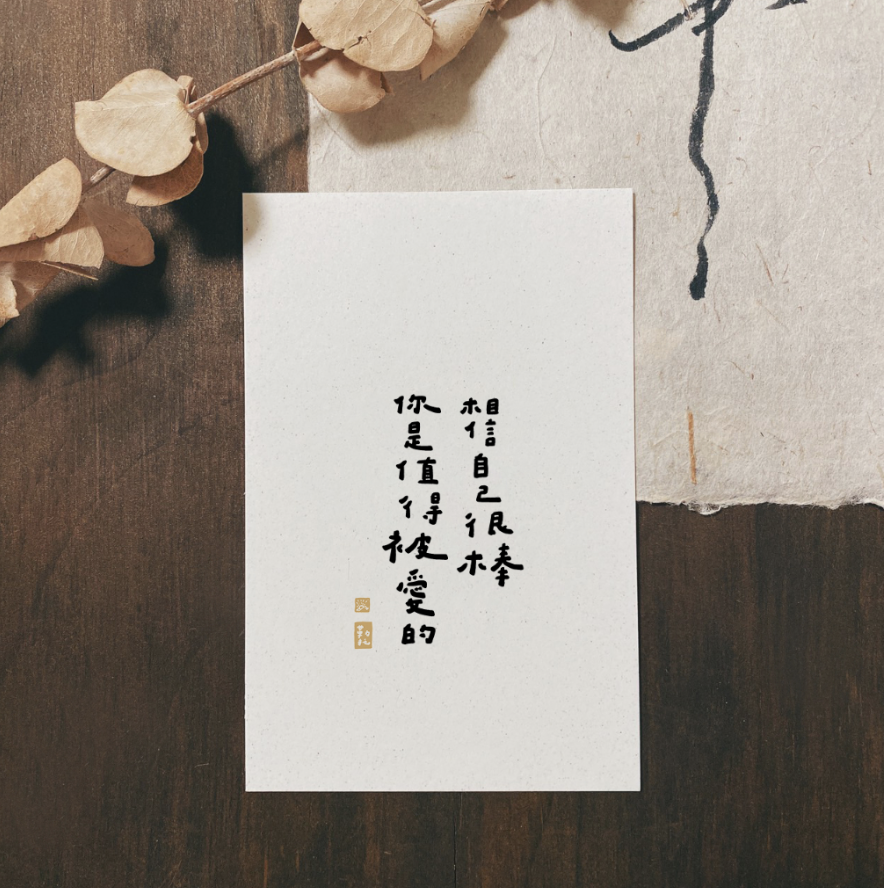 相信自己很棒
你是值得被愛的